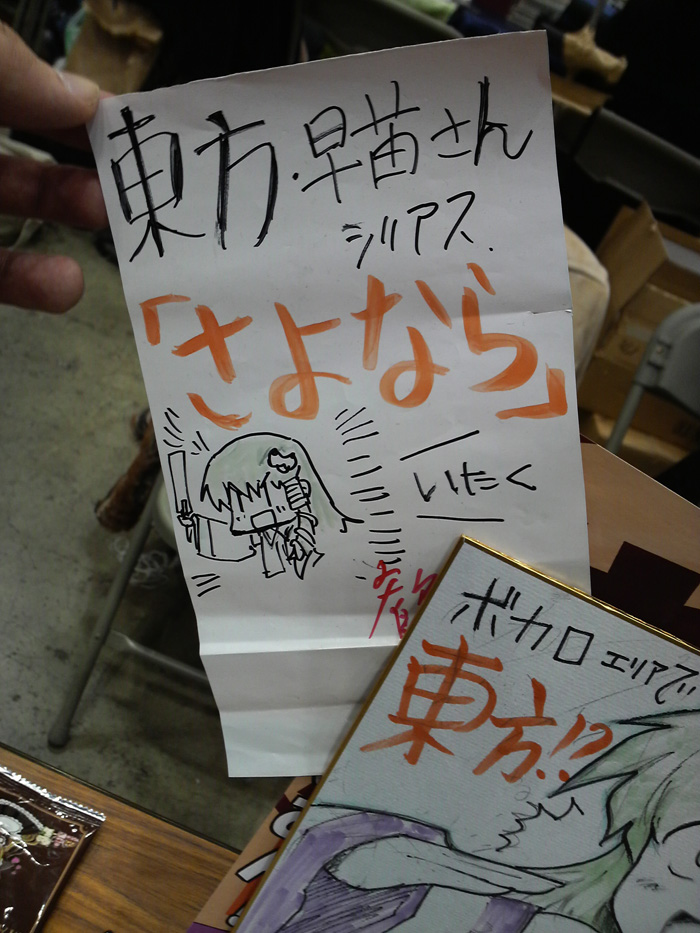 東方・早苗さん
シリアス.
「さよなら」
いたく
ボカロエリアで
東方!?